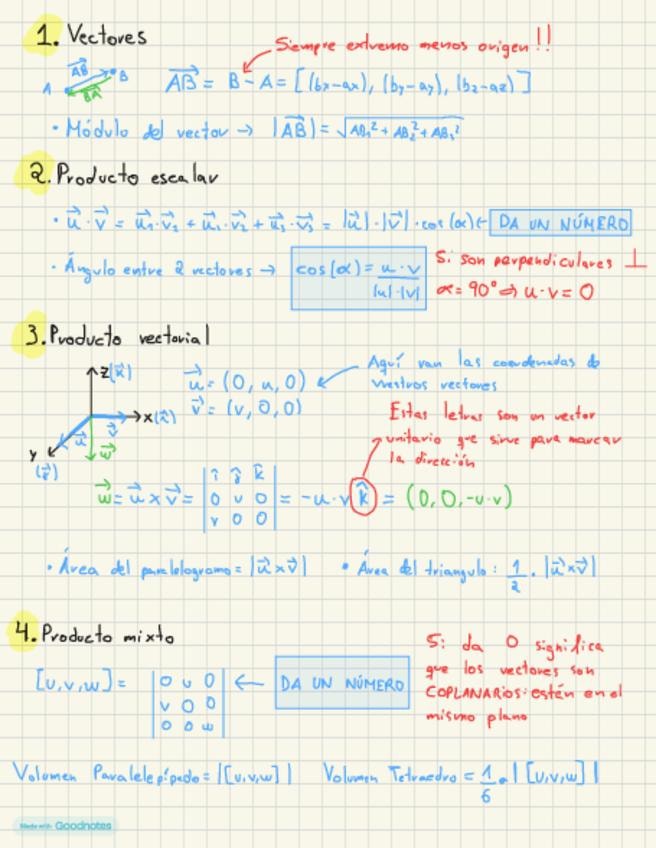 1. Vectores
Siempre extremo menos origen!!
A AB B BA
AB = B - A = [(bx-ax), (by-ay), (bz-az)]
· Módulo del vector → |AB| = √AB₁² + AB₂² + AB₃²
2. Producto escalar
· u · v = u₁·v₁ + u₂·v₂ + u₃·v₃ = |u|·|v|·cos(α) ← DA UN NÚMERO
· Ángulo entre 2 vectores → cos(α) = u · v / |u|·|v|
Si son perpendiculares ⊥
α = 90° ⇒ u · v = 0
3. Producto vectorial
z(k) x(i) y (j) u v w
u = (0, u, 0)
v = (v, 0, 0)
Aquí van las coordenadas de
vuestros vectores
Estas letras son un vector
unitario que sirve para marcar
la dirección
w = u x v = | i j k | = -u·v k = (0, 0, -u·v)
0 u 0
v 0 0
· Área del paralelogramo = |u x v| · Área del triangulo: 1/2 · |u x v|
4. Producto mixto
[u,v,w] = | 0 u 0 | ← DA UN NÚMERO
v 0 0
0 0 w
Si da 0 significa
que los vectores son
COPLANARIOS: están en el
mismo plano
Volumen Paralelepípedo = |[u,v,w]| Volumen Tetraedro = 1/6 · |[u,v,w]|
Made with Goodnotes